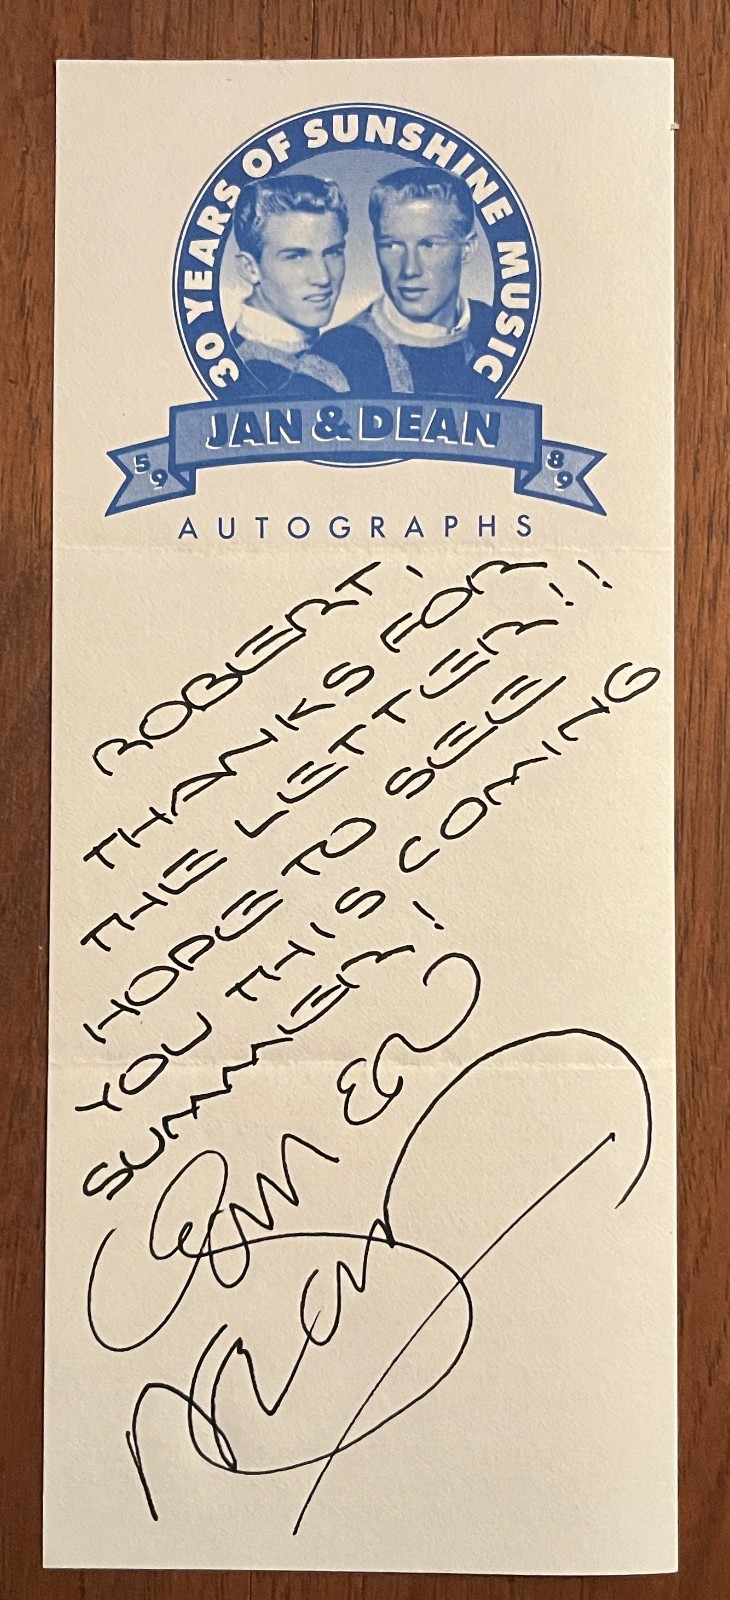 30 YEARS OF SUNSHINE MUSIC
JAN & DEAN
59
89
AUTOGRAPHS
ROBERT,
THANKS FOR
THE LETTER!!
HOPE TO SEE
YOU THIS COMING
SUMMER!
Jan &
Dean